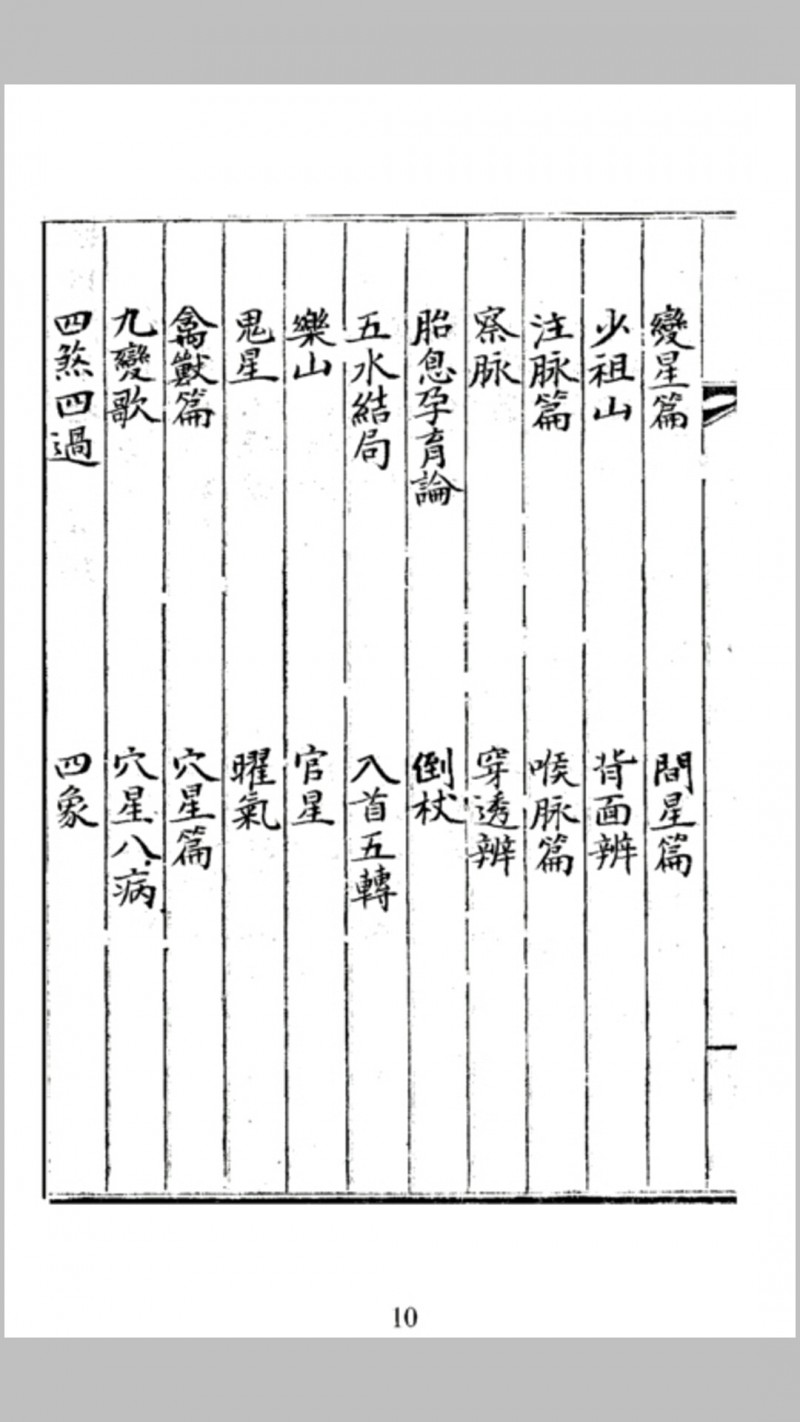 變星篇
間星篇
少祖山
背面辨
注脉篇
喉脉篇
察脉
穿透辨
胎息孕育論
倒杖
五水結局
入首五轉
樂山
官星
鬼星
曜氣
禽獸篇
穴星篇
九變歌
穴星八病
四煞四過
四象
10